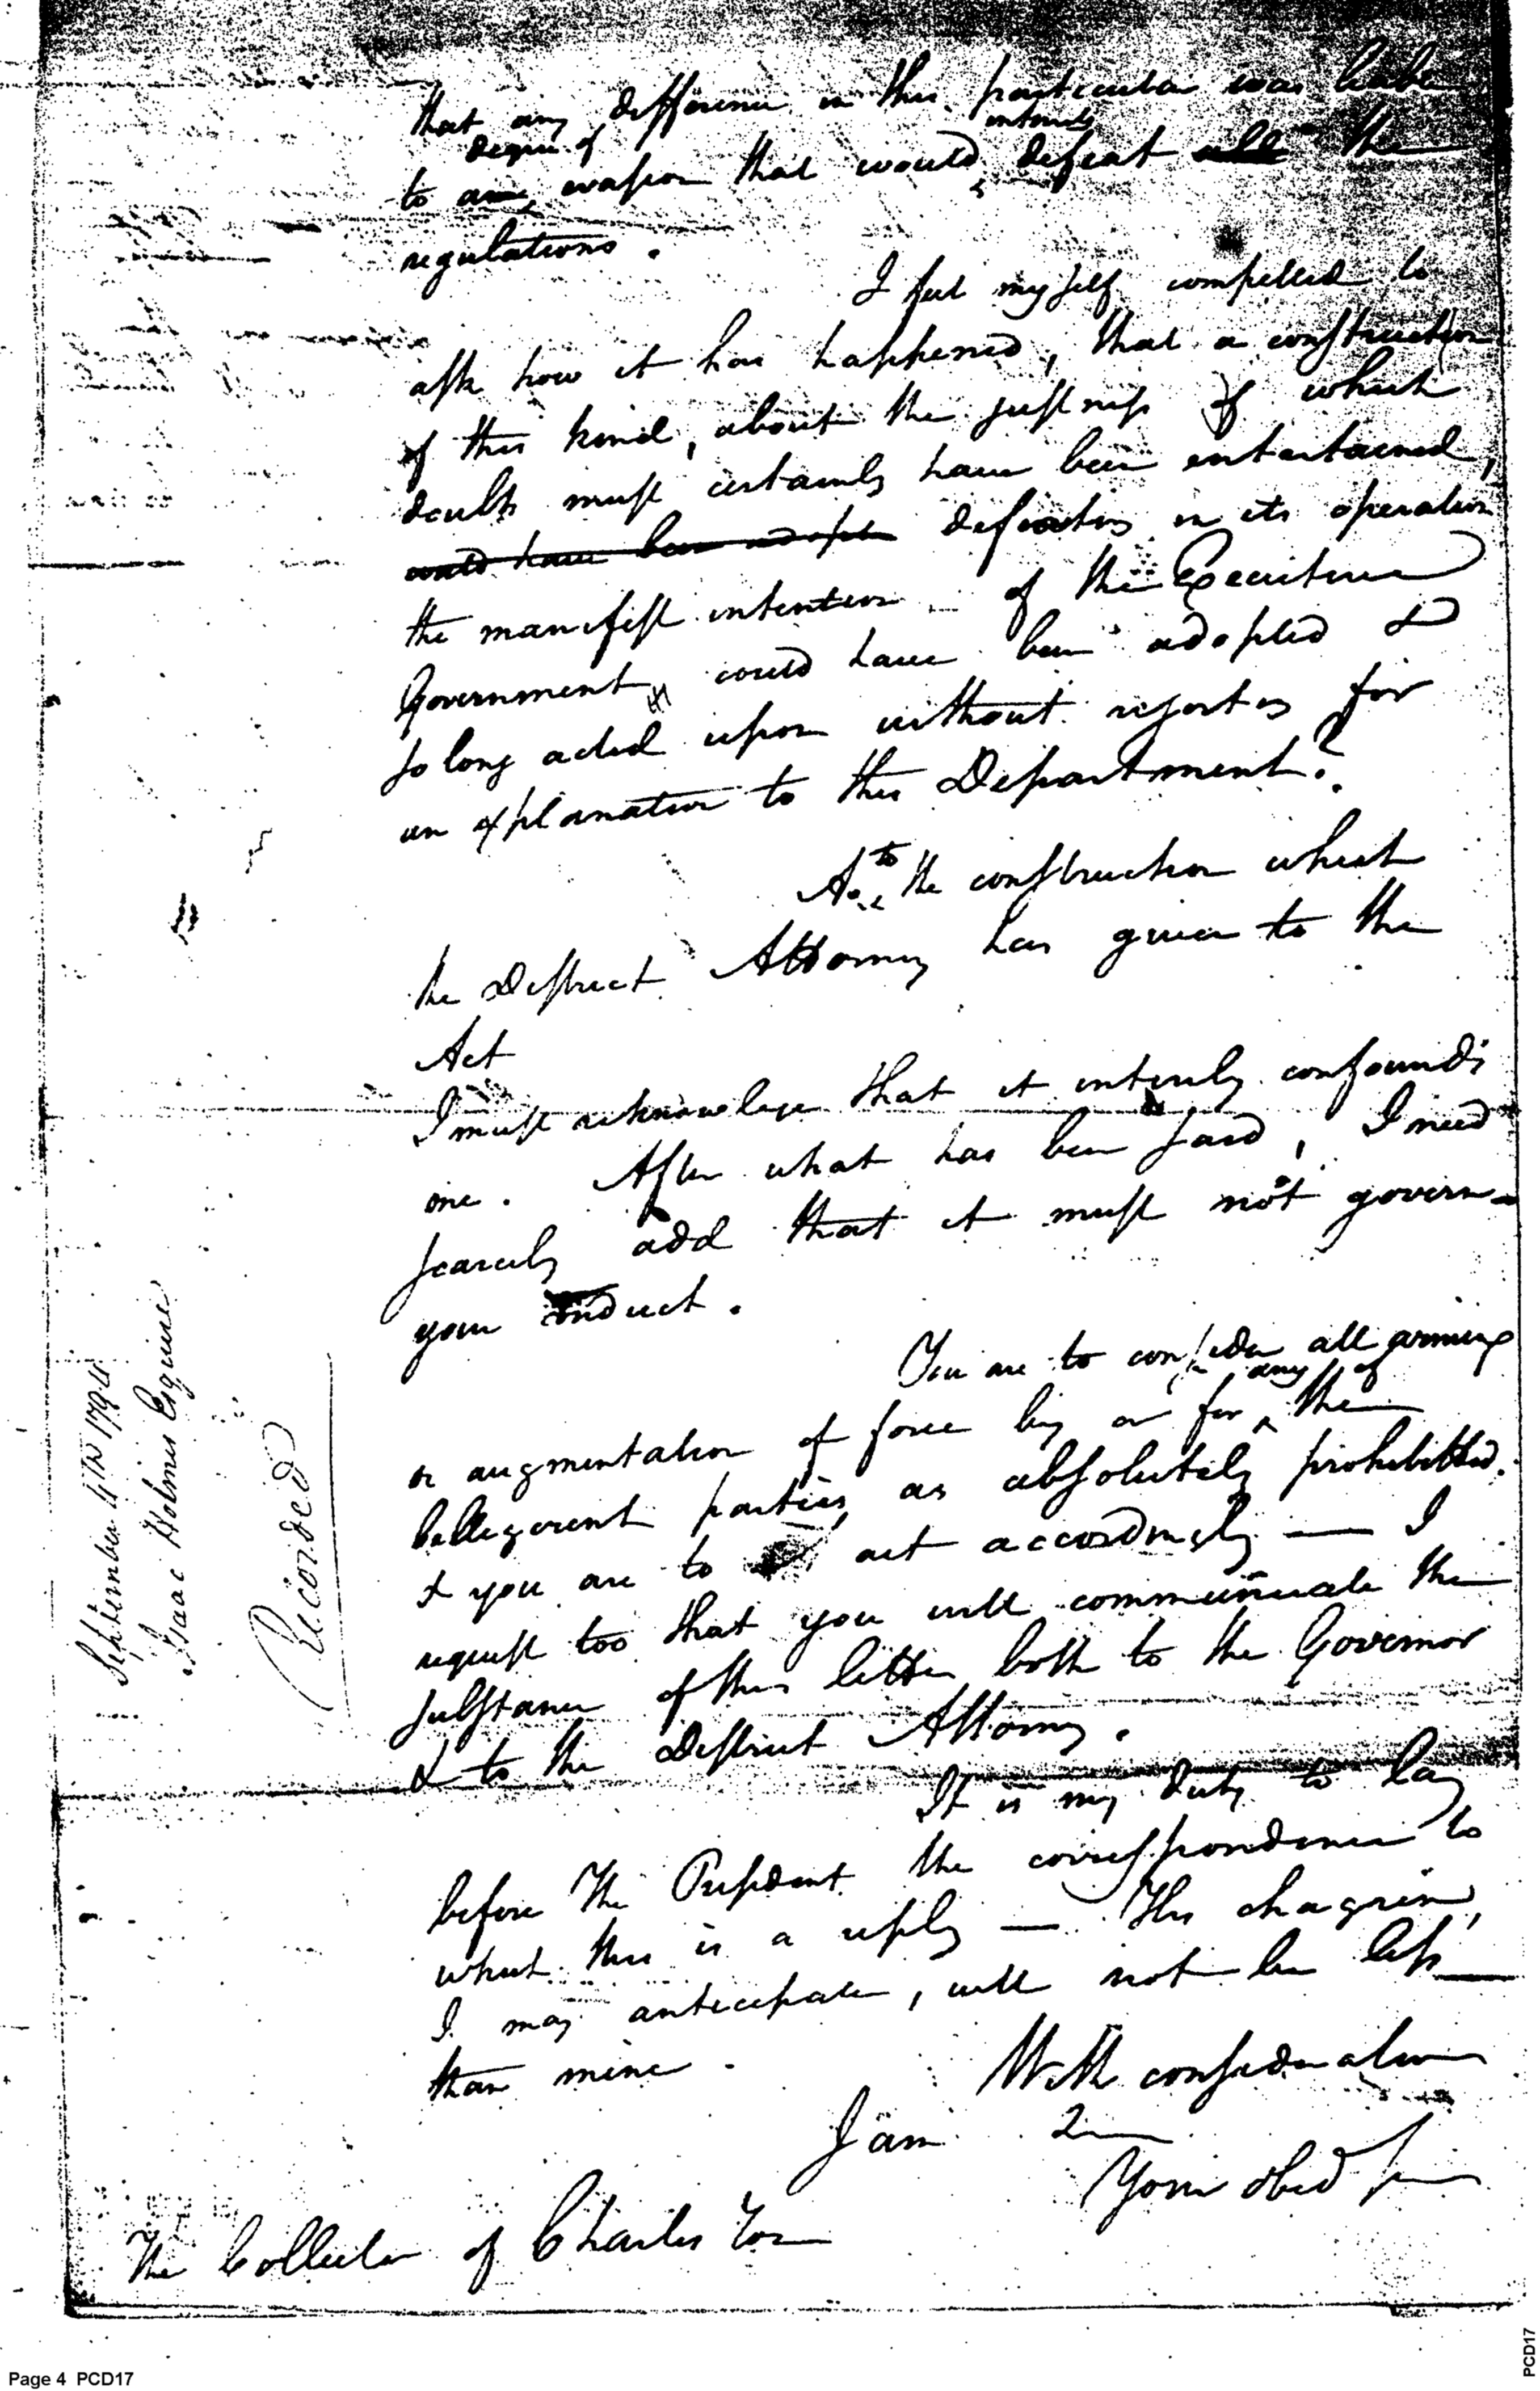 that any difference in this particular was liable
degree of intirely
to any evasion that would defeat all the
regulations.
I feel myself compelled to
ask how it has happened, that a construction
of this kind, about the justness of which
doubts must certainly have been entertained,
could have been adopted defeating in its operation
the manifest intention of the Executive
Government, could have been adopted &
so long acted upon without resorting for
an explanation to this Department?
As to the construction which
the District Attorney has given to the
Act
I must acknowlege that it intirely confounds
me. After what has been said, I need
scarcely add that it must not govern
your conduct.
You are to consider all arming
any of
or augmentation of force by or for the
belligerent parties, as absolutely prohibitted.
& you are to act accordingly — I
request too that you will communicate the
substance of this letter both to the Governor
& to the District Attorney.
It is my duty to lay
before The President the correspondence to
which this is a reply — His chagrin,
I may anticipate, will not be less
than mine.
With consideration
I am
Your obed ser
The Collector of Charles Ton
September 4th 1794
Isaac Holmes Esquire
Recorded
Page 4 PCD17
PCD17